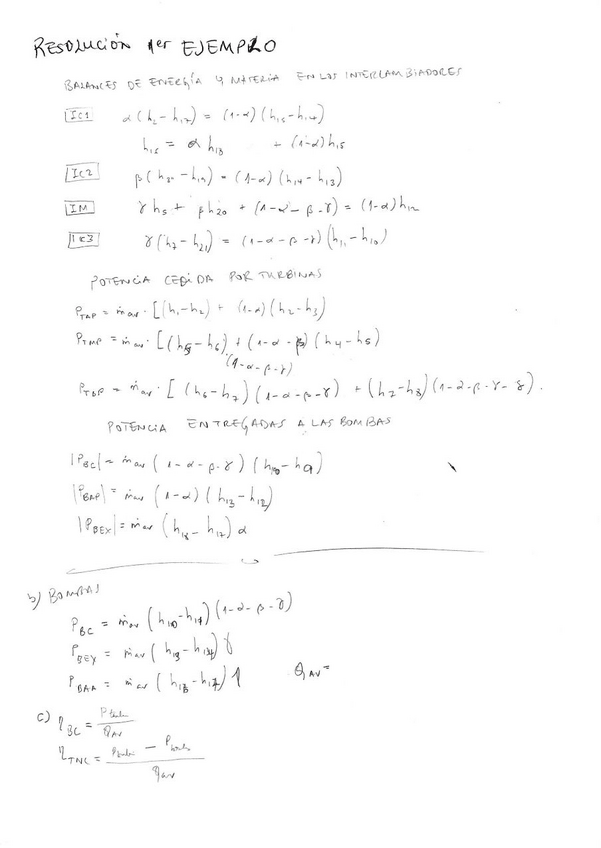 RESOLUCIÓN 1er EJEMPLO
BALANCES DE ENERGÍA Y MATERIA EN LOS INTERCAMBIADORES
IC1 α(h₂-h₁₇) = (1-α)(h₁₅-h₁₄)
h₁₆ = α h₁₈ + (1-α)h₁₅
IC2 β(h₃-h₁₉) = (1-α)(h₁₄-h₁₃)
IM γh₅ + βh₂₀ + (1-α-β-γ) = (1-α)h₁₂
IC3 γ(h₇-h₂₁) = (1-α-β-γ)(h₁₁-h₁₀)
POTENCIA CEDIDA POR TURBINAS
P_TAP = ṁ_av·[(h₁-h₂) + (1-α)(h₂-h₃)
P_TMP = ṁ_av·[(h₅-h₆) + (1-α-β)(h₄-h₅)
(1-α-β-γ)
P_TBP = ṁ_av·[(h₆-h₇)(1-α-β-γ) + (h₇-h₈)(1-α-β-γ-δ).
POTENCIA ENTREGADAS A LAS BOMBAS
|P_BC| = ṁ_av (1-α-β-γ)(h₁₀-h₉)
|P_BAP| = ṁ_av (1-α)(h₁₃-h₁₂)
|P_BEX| = ṁ_av (h₁₈-h₁₇) α
b) BOMBAS
P_BC = ṁ_av (h₁₀-h₁₁)(1-α-β-γ)
P_BEX = ṁ_av
P_BAA = ṁ_av
Q_AV =
c) η_BC = / Q_AV
η_TNC = - / Q_AV